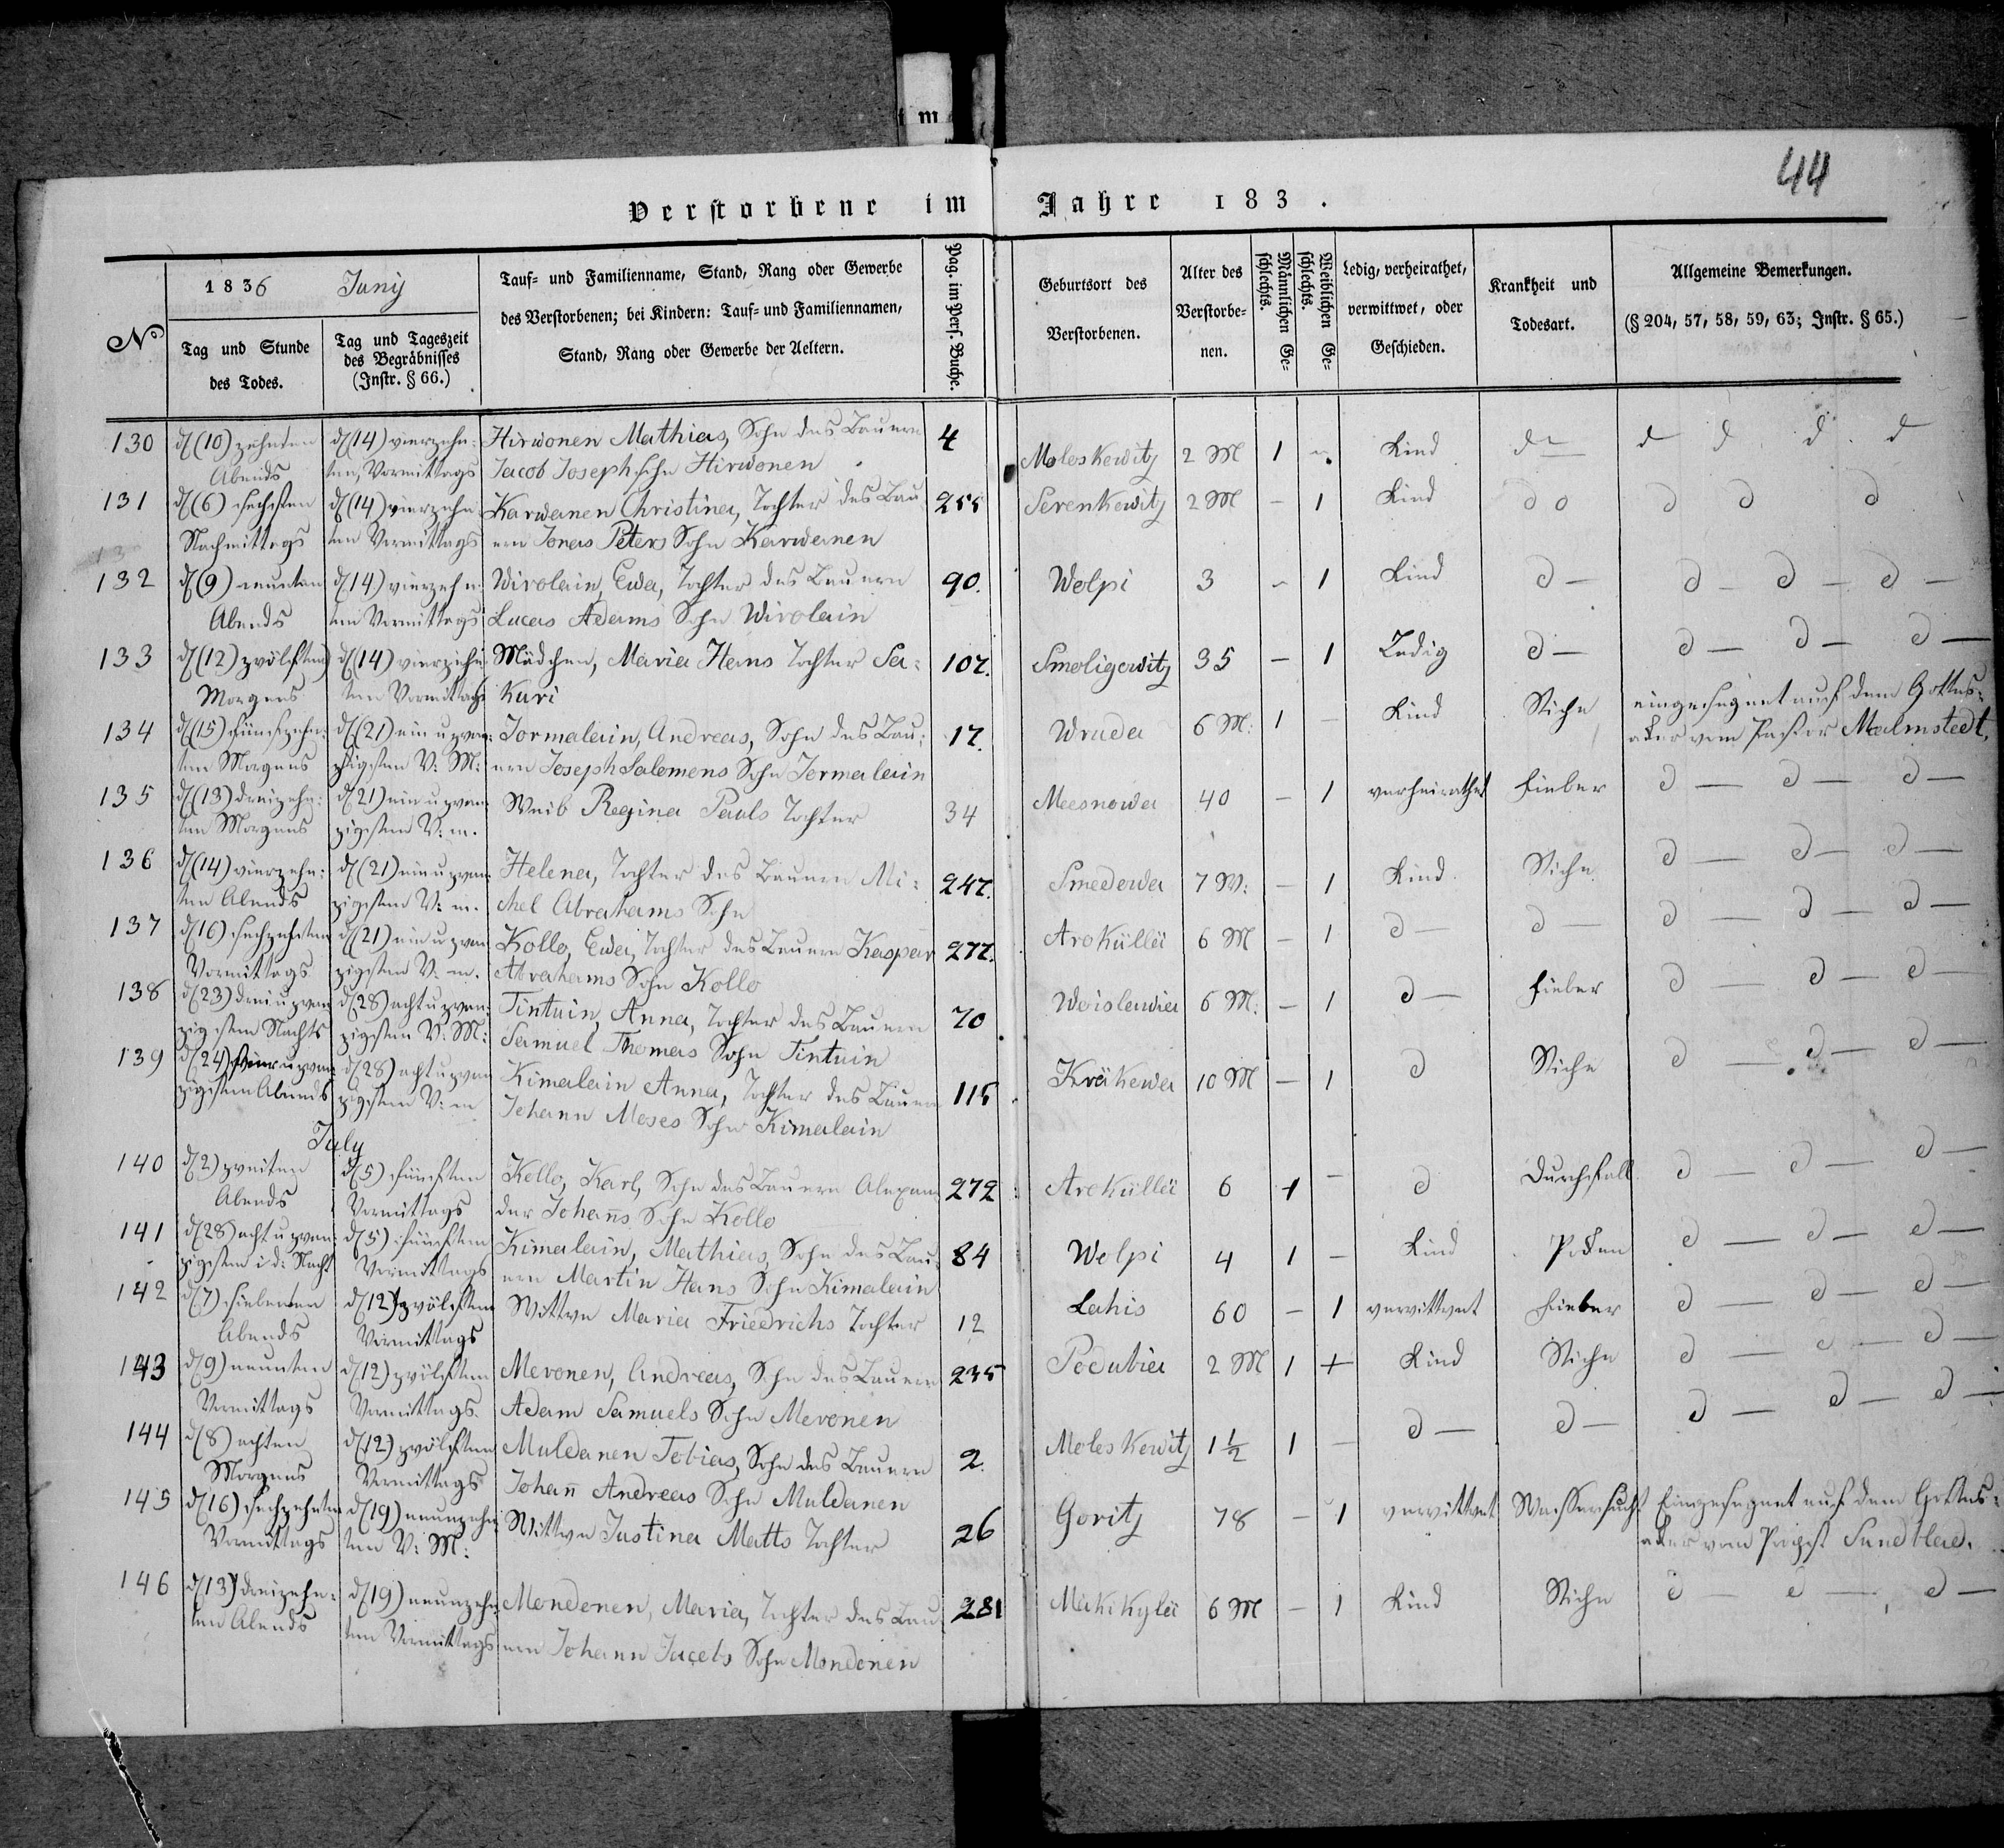 44
Verstorbene im Jahre 183 .
N
1836 Juny
Tag und Stunde des Todes.
Tag und Tageszeit des Begräbnisses (Instr. § 66.)
Tauf- und Familienname, Stand, Rang oder Gewerbe
des Verstorbenen; bei Kindern: Tauf- und Familiennamen,
Stand, Rang oder Gewerbe der Aeltern.
Pag. im Pers. Buche.
Geburtsort des Verstorbenen.
Alter des Verstorbenen.
Männlichen Geschlechts.
Weiblichen Geschlechts.
Ledig, verheirathet, verwittwet, oder Geschieden.
Krankheit und Todesart.
Allgemeine Bemerkungen.
(§ 204, 57, 58, 59, 63; Instr. § 65.)
130 d (10) zehnten d (14) vierzehn: Hirwonen Mathias, Sohn des Bauern 4 Moloskewitz 2 M 1 Kind d d d d d
Abends ten, Vormittags Jacob Joseph Sohn Hirwonen
131 d (6) sechsten d (14) vierzehn Karwanen Christina, Tochter des Bau 255 Serenkewitz 2 M – 1 Kind do d d d
Nachmittags ten Vormittags ern Jonas Peters Sohn Karwanen
132 d (9) neunten d (14) vierzehn Wirolain, Ewa, Tochter des Bauern 90. Wolpi 3 – 1 Kind d – d – d – d –
Abends ten Vormittags Lucas Adams Sohn Wirolain
133 d (12) zwölften d (14) vierzehn Mädchen, Maria Hans Tochter Sa: 107. Smoligowitz 35 – 1 Ledig d – d – d – d –
Morgens ten Vormittags kuri
134 d (15) fünfzehn: d (21) ein u zwan: Jormalain, Andreas, Sohn des Bau: 17. Wruda 6 M: 1 – Kind Stiche eingesegnet auf dem Gottes:
ten Morgens zigsten V: M: ern Joseph Salomons Sohn Jormalain aker vom Pastor Malmstedt.
135 d (13) dreizehn: d (21) ein u zwan Weib Regina Pauls Tochter 34 Meesnowa 40 – 1 verheirathet Fieber d – d – d –
ten Morgens zigsten V: m.
136 d (14) vierzehn: d (21) ein u zwan Helena, Tochter des Bauern Mi: 247. Smedowa 7 W: – 1 Kind Stiche d – d – d –
ten Abends zigsten V: m. chel Abrahams Sohn
137 d (16) sechzehnten d (21) ein u zwan Kollo, Ewa, Tochter des Bauern Kaspar 277. Arokülla 6 M – 1 d – d – d – d – d –
Vormittags zigsten V. m. Abrahams Sohn Kollo
138 d (23) drei u zwan d (28) acht u zwan: Tintuin, Anna, Tochter des Bauern 70 Woislawia 6 M: – 1 d – Fieber d – d – d –
zigsten Nachts zigsten V: M: Samuel Thomas Sohn Tintuin
139 d (24) vier u zwan: d (28) acht u zwan Kimalain Anna, Tochter des Bauern 115 Kräkowa 10 M – 1 d Stiche d – d – d –
zigsten Abends zigsten V: m Johann Moses Sohn Kimalain
July
140 d (2) zweiten d (5) fünften Kollo, Karl, Sohn des Bauern Alexan 272 Arokülla 6 1 – d Durchfall d – d – d –
Abends Vormittags der Johans Sohn Kollo
141 d (28) acht u zwan: d (5) fünften Kimalain, Mathias, Sohn des Bau 84 Wolpi 4 1 – Kind Poken d – d – d –
zigsten i d: Nacht Vormittags ern Martin Hans Sohn Kimalain
142 d (7) siebenten d (12) zwölften Wittwe Maria Friedrichs Tochter 12 Lahis 60 – 1 verwittwet Fieber d – d – d –
Abends Vormittags
143 d (9) neunten d (12) zwölften Mevonen, Andreas, Sohn des Bauern 235 Podubia 2 M 1 + Kind Stiche d – d – d –
Vormittags Vormittags. Adam Samuels Sohn Mevonen
144 d (8) achten d (12) zwölften Muldanen Tobias, Sohn des Bauern 2. Moloskewitz 1 1/2 1 – d – d – d – d – d –
Morgens Vormittags Johan Andreas Sohn Muldanen
145 d (16) sechzehnten d (19) neunzehn Wittwe Justina Matts Tochter 26 Goritz 78 – 1 verwittwet Wassersucht Eingesegnet auf dem Gottes:
Vormittags ten V: M: aker vom Propst Sundblad.
146 d (13) dreizehn: d (19) neunzehn Mondonen, Maria, Tochter des Bau 281 Mäkikylä 6 M – 1 Kind Stiche d – d – d –
ten Abends ten Vormittags ern Johann Jacobs Sohn Mondonen